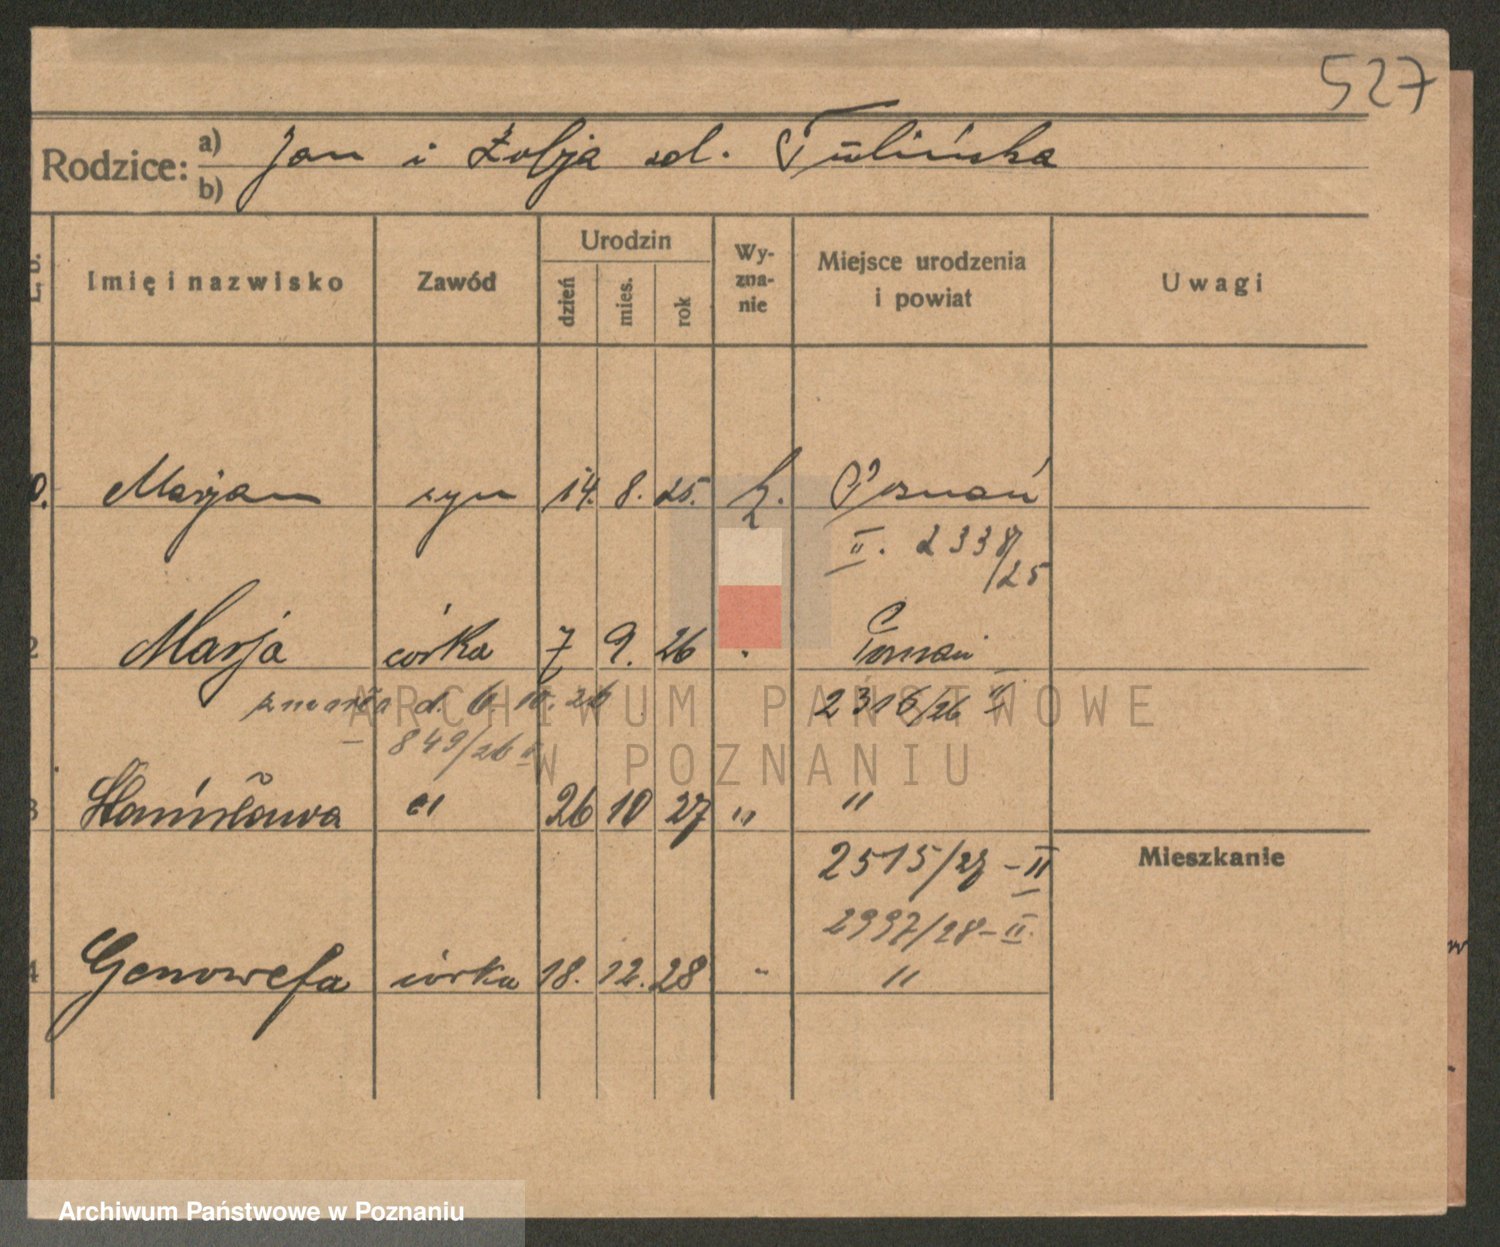 527
Rodzice: a) Jan i Zofja zd. Tulińska
b)
L. b.
Imię i nazwisko
Zawód
Urodzin
dzień
mies.
rok
Wy-
zna-
nie
Miejsce urodzenia
i powiat
Uwagi
0. Marjan syn 14. 8. 25. k. Poznań
II. 2338/25
2 Marja córka 7 9. 26 " Poznań
zmarła d. 6. 10. 26 2316/26 II
849/26 II
3 Stanisława " 26 10 27 " "
2515/27 - II
Mieszkanie
2997/28 - II.
4 Genowefa córka 18. 12. 28 " "
ARCHIWUM PAŃSTWOWE
W POZNANIU
Archiwum Państwowe w Poznaniu